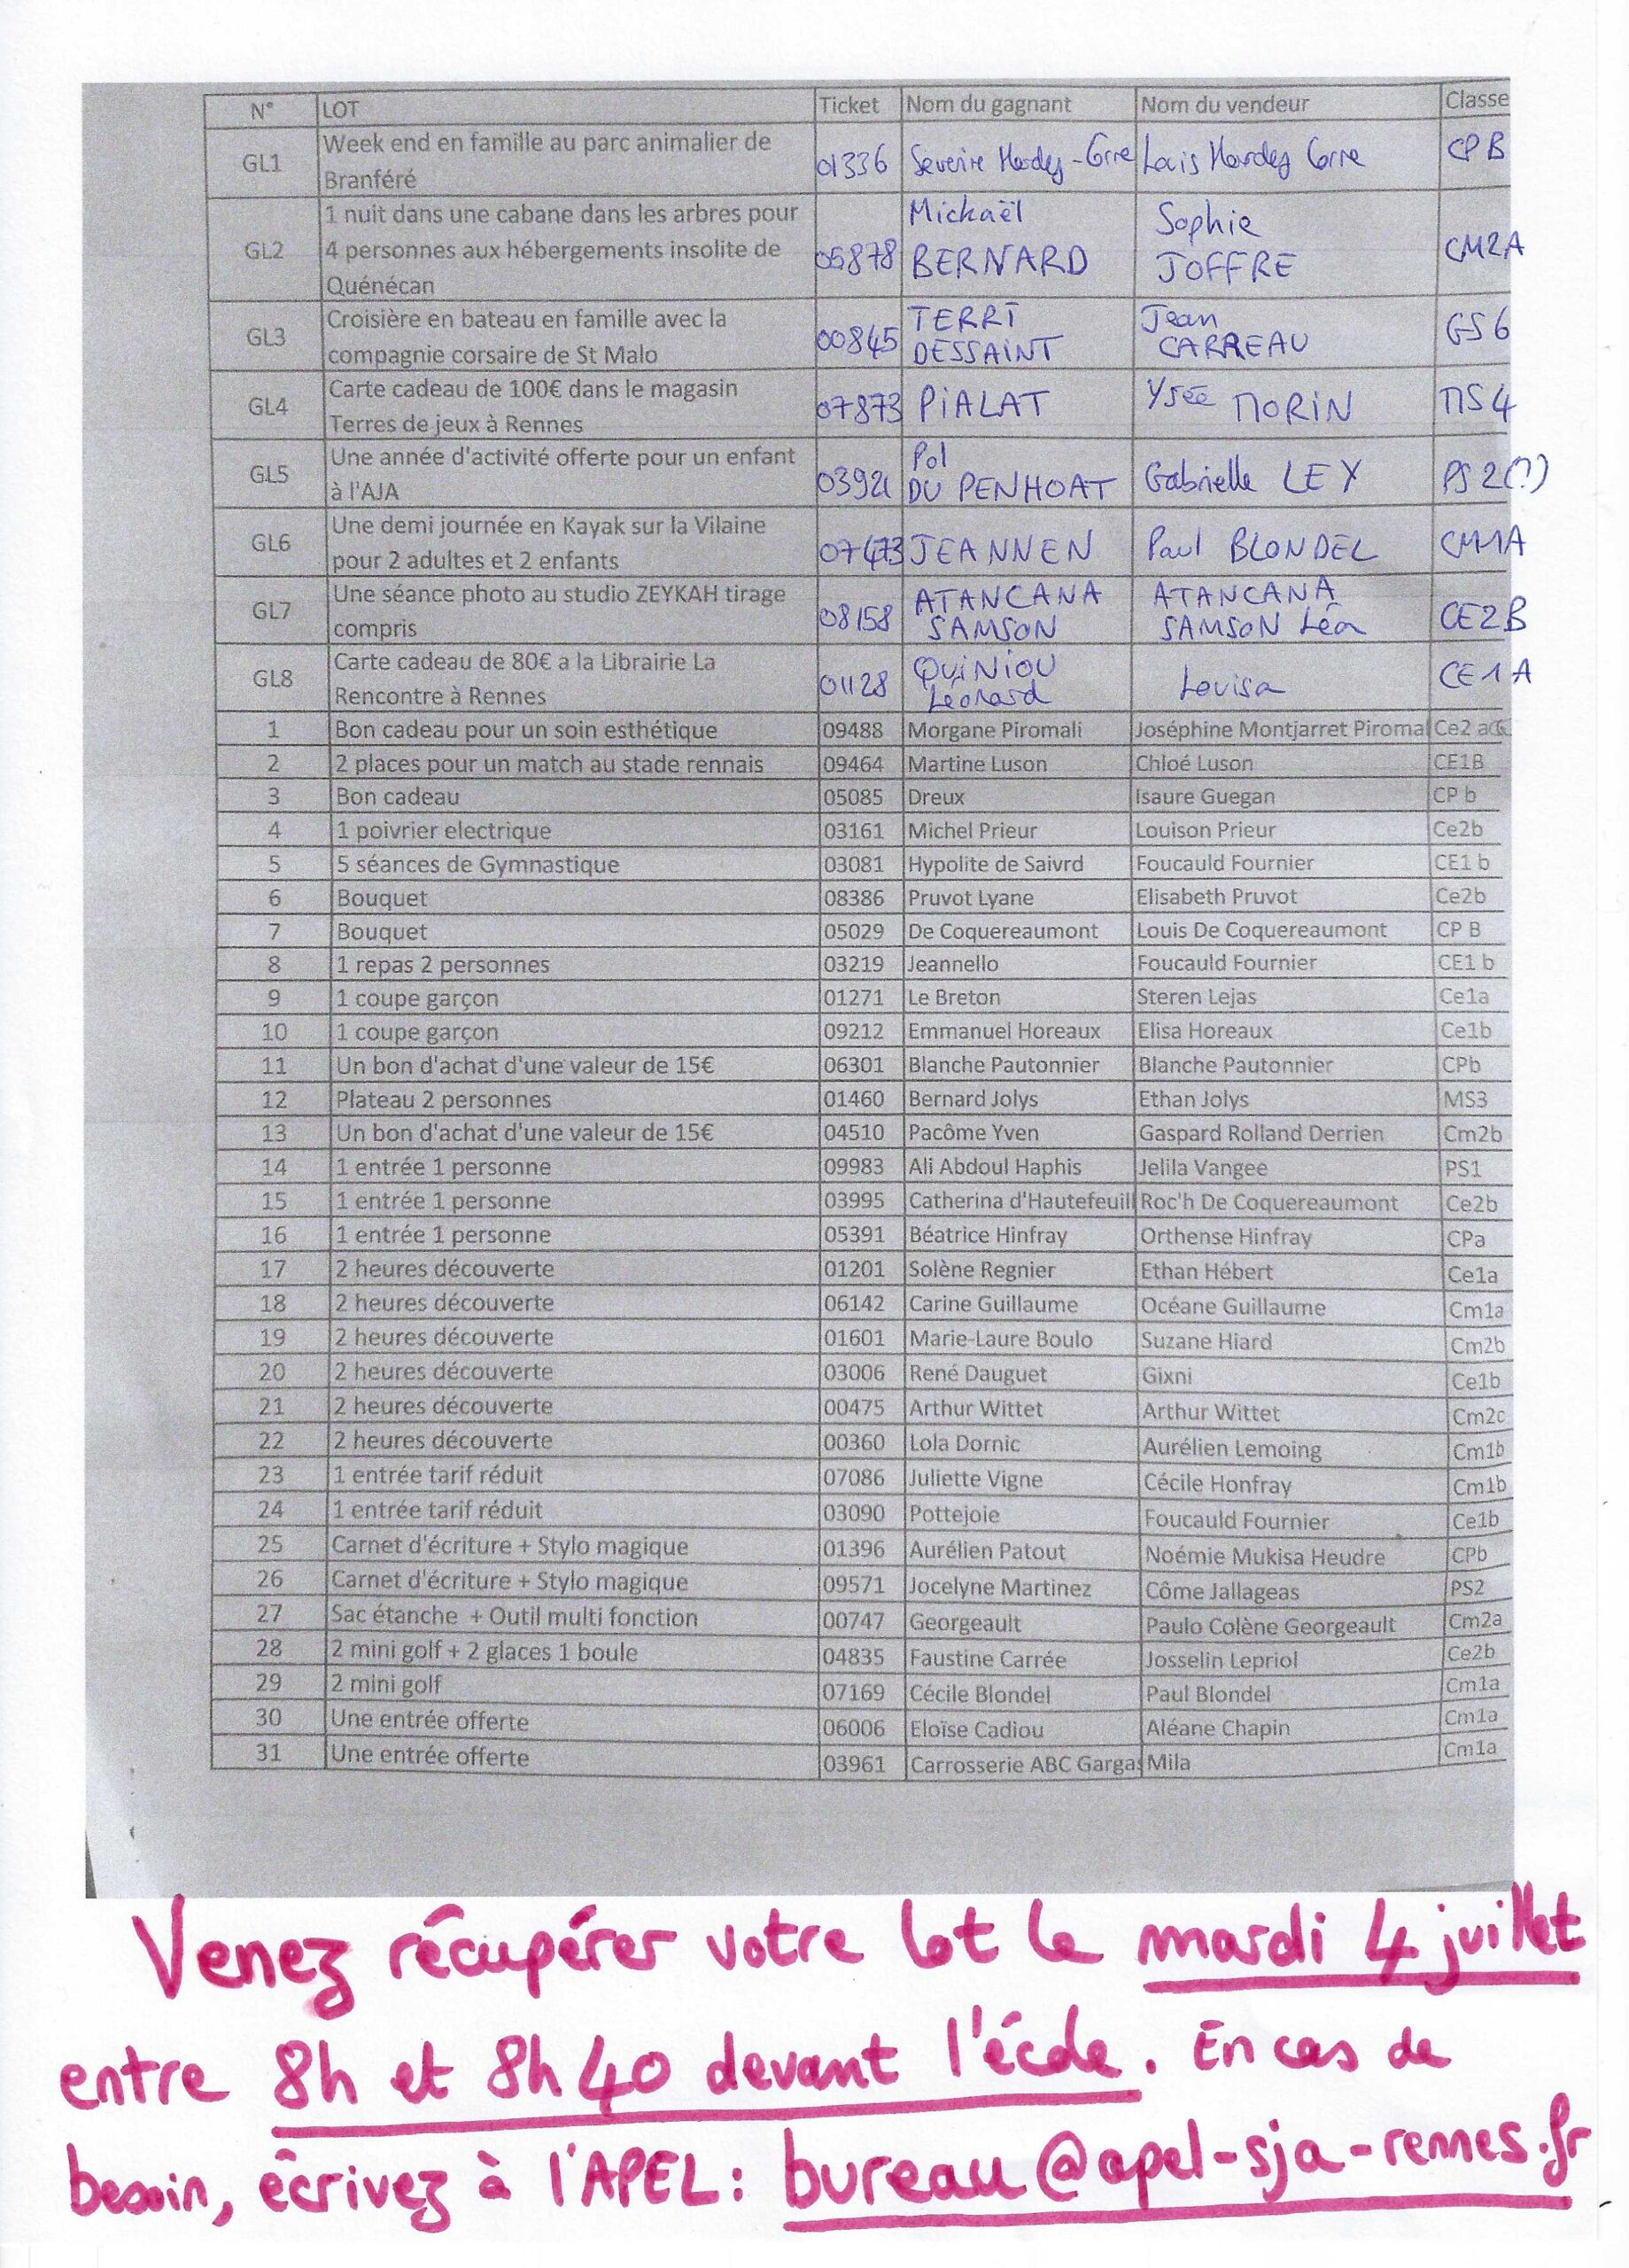 N° LOT Ticket Nom du gagnant Nom du vendeur Classe
GL1 Week end en famille au parc animalier de Branféré 01336 Severine Hardy-Corre Loïs Hardy Corre CPB
GL2 1 nuit dans une cabane dans les arbres pour 4 personnes aux hébergements insolite de Quénécan 05878 Mickaël BERNARD Sophie JOFFRE CM2A
GL3 Croisière en bateau en famille avec la compagnie corsaire de St Malo 00845 TERRI DESSAINT Jean CARREAU GS6
GL4 Carte cadeau de 100€ dans le magasin Terres de jeux à Rennes 07873 PIALAT Ysée MORIN MS4
GL5 Une année d'activité offerte pour un enfant à l'AJA 03921 Pol DU PENHOAT Gabrielle LEY PS2(?)
GL6 Une demi journée en Kayak sur la Vilaine pour 2 adultes et 2 enfants 07473 JEANNEN Paul BLONDEL CM1A
GL7 Une séance photo au studio ZEYKAH tirage compris 08158 ATANCANA SAMSON ATANCANA SAMSON Léa CE2B
GL8 Carte cadeau de 80€ a la Librairie La Rencontre à Rennes 01128 QUINIOU Léonard Louisa CE1A
1 Bon cadeau pour un soin esthétique 09488 Morgane Piromali Joséphine Montjarret Piromal Ce2
2 2 places pour un match au stade rennais 09464 Martine Luson Chloé Luson CE1B
3 Bon cadeau 05085 Dreux Isaure Guegan CP b
4 1 poivrier electrique 03161 Michel Prieur Louison Prieur Ce2b
5 5 séances de Gymnastique 03081 Hypolite de Saivrd Foucauld Fournier CE1 b
6 Bouquet 08386 Pruvot Lyane Elisabeth Pruvot Ce2b
7 Bouquet 05029 De Coquereaumont Louis De Coquereaumont CP B
8 1 repas 2 personnes 03219 Jeannello Foucauld Fournier CE1 b
9 1 coupe garçon 01271 Le Breton Steren Lejas Ce1a
10 1 coupe garçon 09212 Emmanuel Horeaux Elisa Horeaux Ce1b
11 Un bon d'achat d'une valeur de 15€ 06301 Blanche Pautonnier Blanche Pautonnier CPb
12 Plateau 2 personnes 01460 Bernard Jolys Ethan Jolys MS3
13 Un bon d'achat d'une valeur de 15€ 04510 Pacôme Yven Gaspard Rolland Derrien Cm2b
14 1 entrée 1 personne 09983 Ali Abdoul Haphis Jelila Vangee PS1
15 1 entrée 1 personne 03995 Catherina d'Hautefeuill Roc'h De Coquereaumont Ce2b
16 1 entrée 1 personne 05391 Béatrice Hinfray Orthense Hinfray CPa
17 2 heures découverte 01201 Solène Regnier Ethan Hébert Ce1a
18 2 heures découverte 06142 Carine Guillaume Océane Guillaume Cm1a
19 2 heures découverte 01601 Marie-Laure Boulo Suzane Hiard Cm2b
20 2 heures découverte 03006 René Dauguet Gixni Ce1b
21 2 heures découverte 00475 Arthur Wittet Arthur Wittet Cm2c
22 2 heures découverte 00360 Lola Dornic Aurélien Lemoing Cm1b
23 1 entrée tarif réduit 07086 Juliette Vigne Cécile Honfray Cm1b
24 1 entrée tarif réduit 03090 Pottejoie Foucauld Fournier Ce1b
25 Carnet d'écriture + Stylo magique 01396 Aurélien Patout Noémie Mukisa Heudre CPb
26 Carnet d'écriture + Stylo magique 09571 Jocelyne Martinez Côme Jallageas PS2
27 Sac étanche + Outil multi fonction 00747 Georgeault Paulo Colène Georgeault Cm2a
28 2 mini golf + 2 glaces 1 boule 04835 Faustine Carrée Josselin Lepriol Ce2b
29 2 mini golf 07169 Cécile Blondel Paul Blondel Cm1a
30 Une entrée offerte 06006 Eloïse Cadiou Aléane Chapin Cm1a
31 Une entrée offerte 03961 Carrosserie ABC Gargas Mila Cm1a
Venez récupérer votre lot le mardi 4 juillet
entre 8h et 8h40 devant l'école. En cas de
besoin, écrivez à l'APEL: bureau@apel-sja-rennes.fr